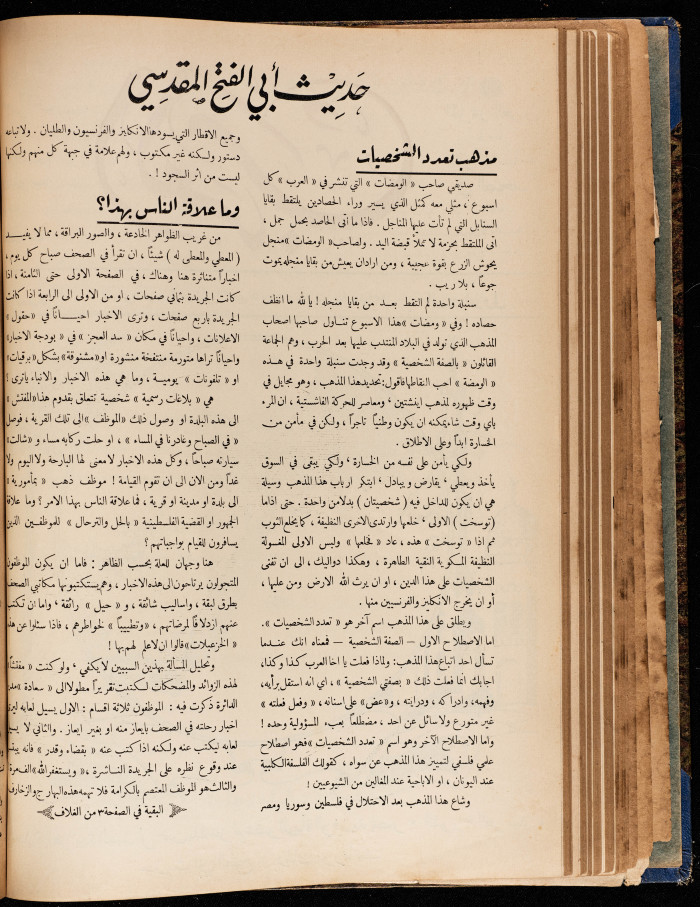 حديث أبي الفتح المقدسي
مذهب تعدد الشخصيات
صديقي صاحب « الومضات » التي تنشر في « العرب » كل
اسبوع ، مثلي معه كمثل الذي يسير وراء الحصادين يلتقط بقايا
السنابل التي لم تأت عليها المناجل . فاذا ما اتى الحاصد بحمل جمل ،
اتى الملتقط بحزمة لا تملأ قبضة اليد . ولصاحب « الومضات » منجل
يحوش الزرع بقوة عجيبة ، ومن اراد ان يعيش من بقايا منجله يموت
جوعاً ، بلا ريب .
سنبلة واحدة لم التقط بعد من بقايا منجله ! يا لله ما انظف
حصاده ! وفي « ومضات » هذا الاسبوع تناول صاحبها اصحاب
المذهب الذي تولد في البلاد المنتدب عليها بعد الحرب ، وهم الجماعة
القائلون « بالصفة الشخصية » وقد وجدت سنبلة واحدة في هذه
« الومضة » احب التقاطها فاقول : تحديد هذا المذهب ، وهو مجايل في
وقت ظهوره لمذهب اينشتين ، ومعاصر للحركة الفاشستية ، ان المرء
باي وقت شاء يمكنه ان يكون وطنياً تاجراً ، ولكن في مأمن من
الخسارة ابداً وعلى الاطلاق .
ولكي يأمن على نفسه من الخسارة ، ولكي يبقى في السوق
يأخذ ويعطي ، يقارض ويبادل ، ابتكر ارباب هذا المذهب وسيلة
هي ان يكون للداخل فيه ( شخصيتان ) بدلا من واحدة . حتى اذا ما
( توسخت ) الاولى ، خلعها وارتدى الاخرى النظيفة ، كما يخلع الثوب
ثم اذا « توسخت » هذه ، عاد « فخلعها » ولبس الاولى المغسولة
النظيفة المكوية النقية الطاهرة ، وهكذا دواليك ، الى ان تفنى
الشخصيات على هذا الدين ، او ان يرث الله الارض ومن عليها ،
أو ان يخرج الانكليز والفرنسيين منها .
ويطلق على هذا المذهب اسم آخر هو « تعدد الشخصيات » .
اما الاصطلاح الاول – الصفة الشخصية – فمعناه انك عندما
تسأل احد اتباع هذا المذهب : ولماذا فعلت يا اخا العرب كذا وكذا ،
اجابك انما فعلت ذلك « بصفتي الشخصية » ، اي انه استقل برأيه ،
وفهمه ، وادراكه ، ودرايته ، و « عض » على اسنانه ، « وفعل فعلته »
غير متورع ولا سائل عن احد ، مضطلعاً بعبء المسؤولية وحده !
واما الاصطلاح الآخر وهو اسم « تعدد الشخصيات » فهو اصطلاح
علمي فلسفي لتمييز هذا المذهب عن سواه ، كقولك الفلسفة الكلبية
عند اليونان ، او الاباحية عند المغالين من الشيوعيين !
وشاع هذا المذهب بعد الاحتلال في فلسطين وسوريا ومصر
وجميع الاقطار التي يسودها الانكليز والفرنسيون والطليان . ولاتباعه
دستور ولكنه غير مكتوب ، ولهم علامة في جبهة كل منهم ولكنها
ليست من اثر السجود ! .
وما علاقة الناس بهذا ؟
من غريب الظواهر الخادعة ، والصور البراقة ، مما لا يفيد
( المعطي والمعطى له ) شيئاً ، ان تقرأ في الصحف صباح كل يوم ،
اخباراً متناثرة هنا وهناك ، في الصفحة الاولى حتى الثامنة ، اذا
كانت الجريدة بثماني صفحات ، او من الاولى الى الرابعة اذا كانت
الجريدة باربع صفحات ، وترى الاخبار احياناً في « حقول »
الاعلانات ، واحياناً في مكان « سد العجز » في « بودجة الاخبار »
واحياناً تراها متورمة منتفخة منشورة او « مشنوقة » بشكل « برقيات »
او « تلفونات » يومية ، وما هي هذه الاخبار والانباء يا ترى !
هي « بلاغات رسمية » شخصية تتعلق بقدوم هذا « المفتش »
الى هذه البلدة او وصول ذلك « الموظف » الى تلك القرية ، فوصل
« في الصباح وغادرنا في المساء » ، او حلت ركابه مساء و « شالت »
سيارته صباحاً ، وكل هذه الاخبار لا معنى لها البارحة ولا اليوم ولا
غداً ومن الان الى ان تقوم القيامة ! موظف ذهب « بمأمورية »
الى بلدة او مدينة او قرية ، فما علاقة الناس بهذا الامر ؟ وما علاقة
الجمهور او القضية الفلسطينية « بالحل والترحال » للموظفين الذين
يسافرون للقيام بواجباتهم ؟
هنا وجهان للعلة بحسب الظاهر : فاما ان يكون الموظفون
المتجولون يرتاحون الى هذه الاخبار ، وهم يستكتبونها مكاتبي الصحف
بطرق لبقة ، واساليب شائقة ، و « حيل » رائقة ، واما ان تكتب
عنهم ازدلافاً لمرضاتهم ، « وتطييباً » لخواطرهم ، فاذا سئلوا عن هذه
« الخزعبلات » قالوا ان لا علم لهم بها !
وتحليل المسألة بهذين السببين لا يكفي ، ولو كنت « مفتشاً »
لهذه الزوائد والمضحكات لكتبت تقريراً مطولا الى « سعادة » مدير
الدائرة ذكرت فيه : الموظفون ثلاثة اقسام : الاول يسيل لعابه ليرى
اخبار رحلته في الصحف بايعاز منه او بغير ايعاز . والثاني لا يسيل
لعابه ليكتب عنه ولكنه اذا كتب عنه « بقضاء وقدر » فانه
عند وقوع نظره على الجريدة الناشرة ، « ويستغفر الله » الف مرة
والثالث هو الموظف المعتصم بالكرامة فلا تهمه هذه البهارج والزخارف
البقية في الصفحة ٣ من الغلاف